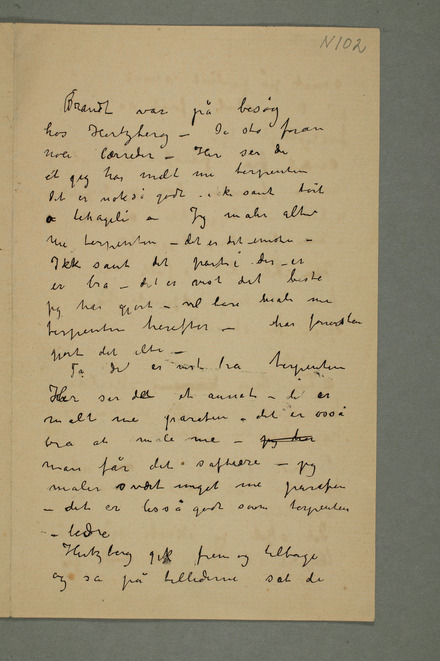 N102
Brandt var på besøg
hos Hertzberg – De sto foran
noen lærreder – Her ser du
et jeg har malt me terpentin
det er nokså godt ikke sant
behageli – Jeg maler alt
me terpentin – det er det eneste –
Ikke sant det parti der – er
er bra – det er vist det beste
jeg har gjort – vil bare male me
terpentin herefter – har forresten
gjort det ofte –
Ja det er nok bra terpentin
Her ser du et annet – det er
malt me parafin – det er osså
bra at male me – jeg har
man får det saftigere – jeg
maler svært meget me parafin
– det er lisså godt som terpentin
– bedre
Hertzberg gik frem og tilbage
og sa på billederne sat de